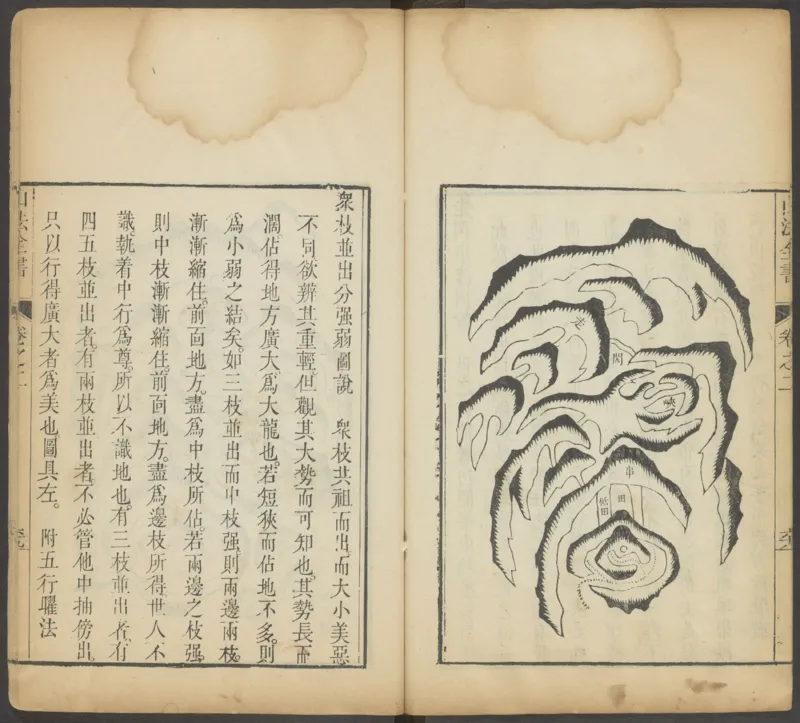 山法全書
卷之二
走
串
田
低田
衆枝並出分强弱圖說　衆枝共祖而出。而大小美惡
不同欲辨其重輕。但觀其大勢而可知也。其勢長而
濶佔得地方廣大爲大龍也。若短狹而佔地不多。則
爲小弱之結矣。如三枝並出而中枝强。則兩邊兩枝
漸漸縮住。前面地方。盡爲中枝所佔。若兩邊之枝强。
則中枝漸漸縮住。前面地方。盡爲邊枝所得。世人不
識。執着中行爲尊。所以不識地也。有三枝並出者。有
四五枝並出者。有兩枝並出者。不必管他中抽傍出。
只以行得廣大者爲美也。圖具左。　附五行曜法
山法全書
卷之二